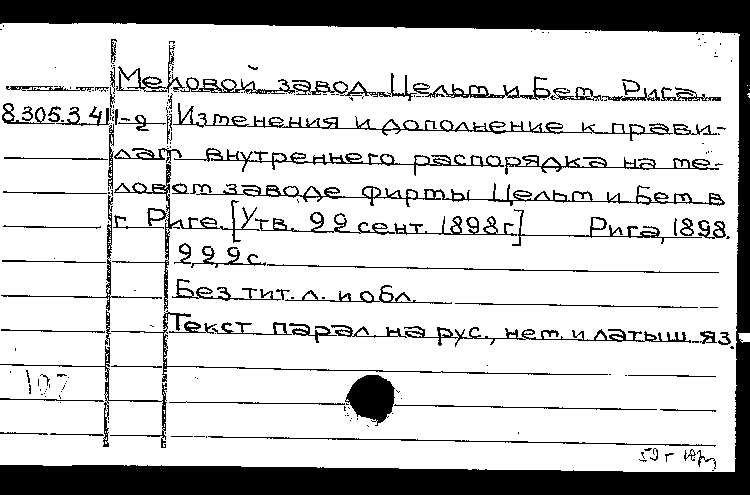 Меловой завод Цельм и Бем. Рига.
8.305.3.411-2 Изменения и дополнение к прави-
лам внутреннего распорядка на ме-
ловом заводе фирмы Цельм и Бем в
г. Риге. [Утв. 22 сент. 1898 г.] Рига, 1898.
2,2,2 с.
Без тит. л. и обл.
Текст парал. на рус., нем. и латыш. яз.
107
59 г